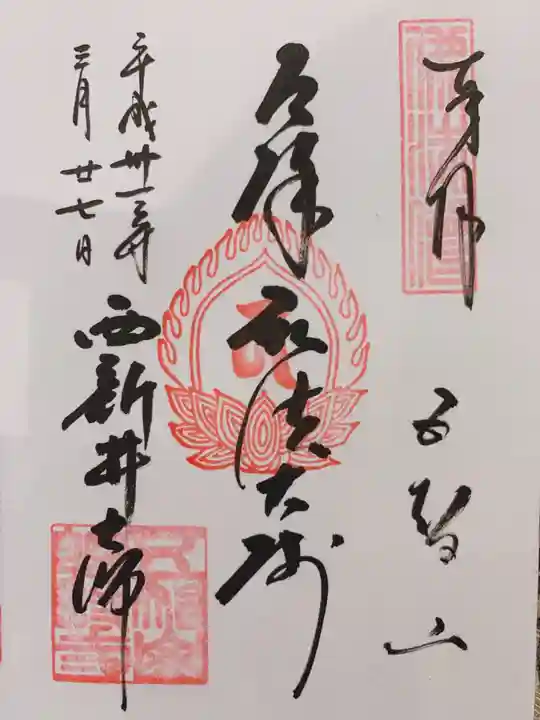 奉拝
五智山
厄除 弘法大師
西新井大師
平成卅一年
三月廿七日